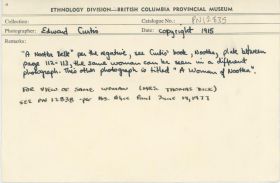 ETHNOLOGY DIVISION—BRITISH COLUMBIA PROVINCIAL MUSEUM
Collection Catalogue No. PN12835
Photographer: Edward Curtis Date: copyright 1915
Remarks:
"A Nootka Belle" per the negative, see Curtis' book, Nootka, plate between
page 112-113, the same woman can be seen in a different
photograph. This other photograph is titled "A Woman of Nootka".
FOR VIEW OF SAME WOMAN (MRS. THOMAS DICK)
SEE PN 12838 - per Mrs. Alice June 14, 1977